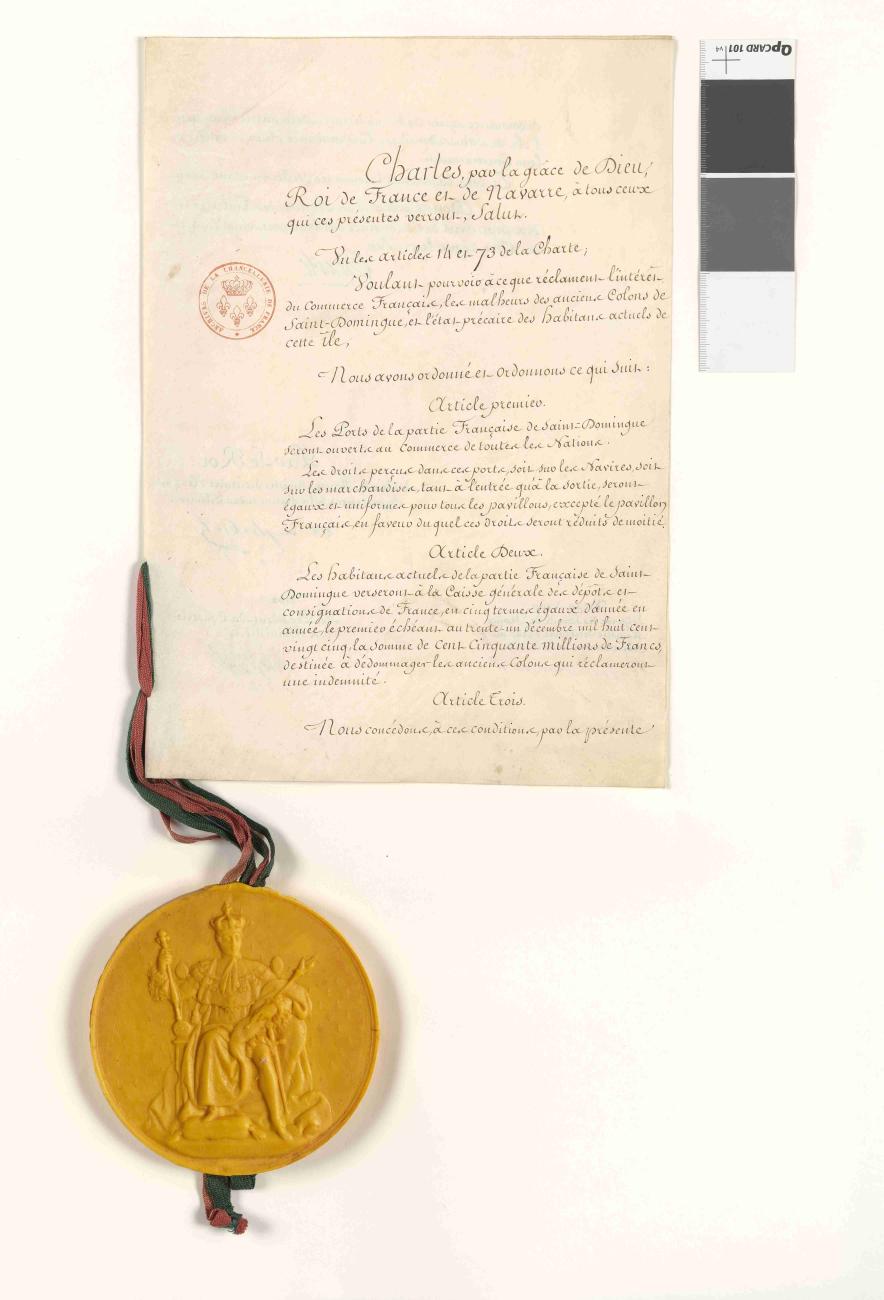 Charles, par la grâce de Dieu,
Roi de France et de Navarre, à tous ceux
qui ces présentes verront, Salut.
Vu les articles 14 et 73 de la Charte;
Voulant pourvoir à ce que réclament l'intérêt
du Commerce Français, les malheurs des anciens Colons de
Saint-Domingue, et l'état précaire des habitans actuels de
cette Ile;
Nous avons ordonné et ordonnons ce qui suit:
Article premier.
Les Ports de la partie Française de Saint-Domingue
seront ouverts au Commerce de toutes les Nations.
Les droits perçus dans ces ports, soit sur les Navires, soit
sur les marchandises, tant à l'entrée qu'à la sortie, seront
égaux et uniformes pour tous les pavillons, excepté le pavillon
Français, en faveur du quel ces droits seront réduits de moitié.
Article Deux.
Les habitans actuels de la partie Française de Saint-
Domingue verseront à la Caisse générale des dépôts et
consignations de France, en cinq termes égaux d'année en
année, le premier échéant au trente-un décembre mil huit cent
vingt cinq, la somme de Cent Cinquante Millions de Francs,
destinée à dédommager les anciens Colons qui réclameront
une indemnité.
Article Trois.
Nous concédons, à ces conditions, par la présente
ARCHIVES DE LA CHANCELLERIE DE FRANCE
QPCARD 101 v4